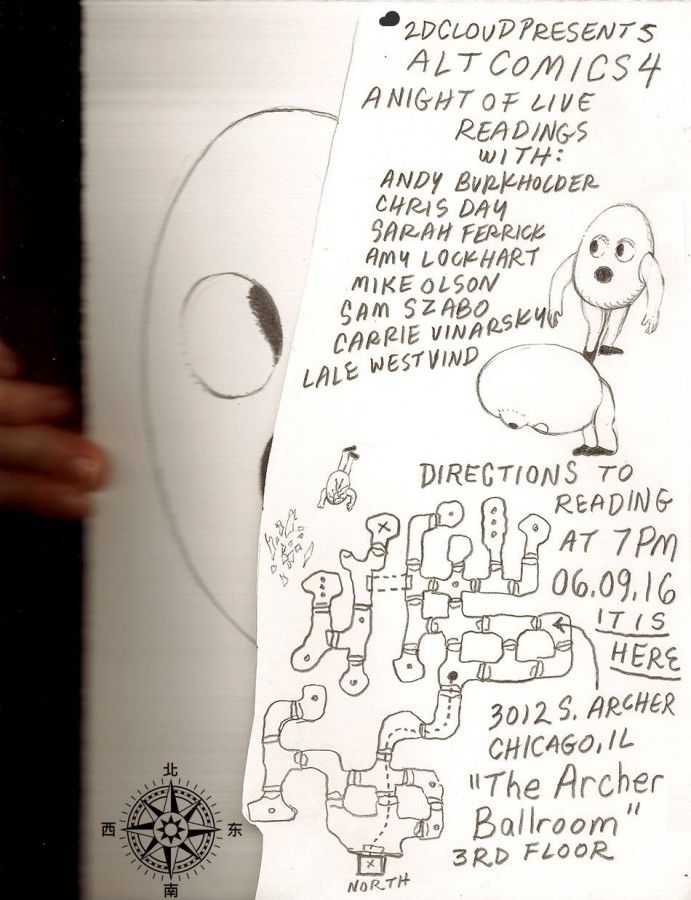 2DCLOUD PRESENTS
ALT COMICS 4
A NIGHT OF LIVE
READINGS
WITH:
ANDY BURKHOLDER
CHRIS DAY
SARAH FERRICK
AMY LOCKHART
MIKE OLSON
SAM SZABO
CARRIE VINARSKY
LALE WESTVIND
DIRECTIONS TO
READING
AT 7PM
06.09.16
IT IS
HERE
X
3012 S. ARCHER
CHICAGO, IL
"The Archer
Ballroom"
3RD FLOOR
X
NORTH
北
西 东
南